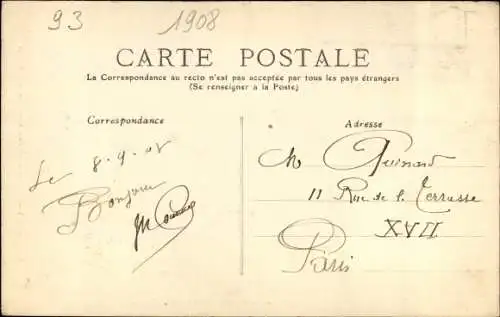 93 1908
CARTE POSTALE
La Correspondance au recto n'est pas acceptée par tous les pays étrangers
(Se renseigner à la Poste)
Correspondance
Adresse
Le 8-9-08
Bonjour
M
11 Rue de la Terrasse
XVII
Paris